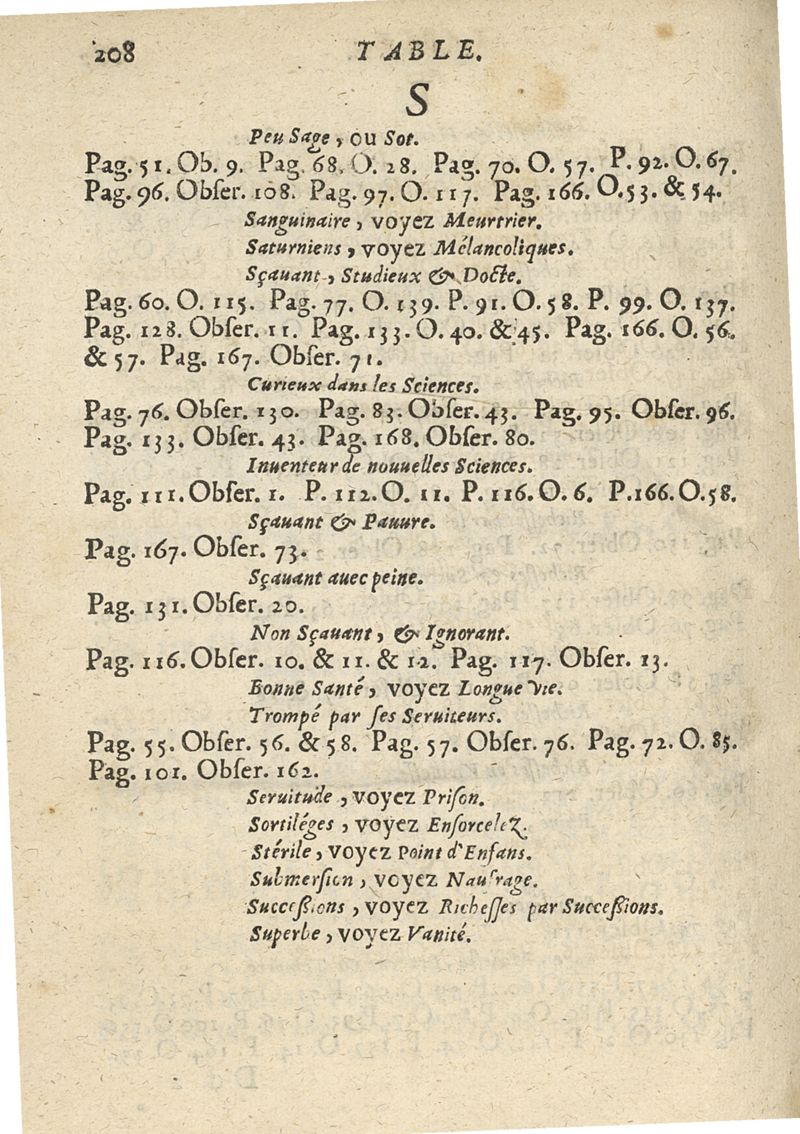 208 TABLE.
S
Peu Sage, ou Sot.
Pag. 51. Ob. 9. Pag. 68. O. 28. Pag. 70. O. 57. P. 92. O. 67.
Pag. 96. Obſer. 108. Pag. 97. O. 117. Pag. 166. O. 53. & 54.
Sanguinaire, voyez Meurtrier.
Saturniens, voyez Mélancoliques.
Sçauant, Studieux & Docte.
Pag. 60. O. 115. Pag. 77. O. 139. P. 91. O. 58. P. 99. O. 137.
Pag. 128. Obſer. 11. Pag. 133. O. 40. & 45. Pag. 166. O. 56.
& 57. Pag. 167. Obſer. 71.
Curieux dans les Sciences.
Pag. 76. Obſer. 130. Pag. 83. Obſer. 43. Pag. 95. Obſer. 96.
Pag. 133. Obſer. 43. Pag. 168. Obſer. 80.
Inuenteur de nouuelles Sciences.
Pag. 111. Obſer. 1. P. 112. O. 11. P. 116. O. 6. P. 166. O. 58.
Sçauant & Pauure.
Pag. 167. Obſer. 73.
Sçauant auec peine.
Pag. 131. Obſer. 20.
Non Sçauant, & Ignorant.
Pag. 116. Obſer. 10. & 11. & 12. Pag. 117. Obſer. 13.
Bonne Santé, voyez Longue Vie.
Trompé par ſes Seruiteurs.
Pag. 55. Obſer. 56. & 58. Pag. 57. Obſer. 76. Pag. 72. O. 85.
Pag. 101. Obſer. 162.
Seruitude, voyez Priſon.
Sortiléges, voyez Enſorcelez.
Stérile, voyez Point d'Enfans.
Submerſion, voyez Naufrage.
Succeſſions, voyez Richeſſes par Succeſſions.
Superbe, voyez Vanité.